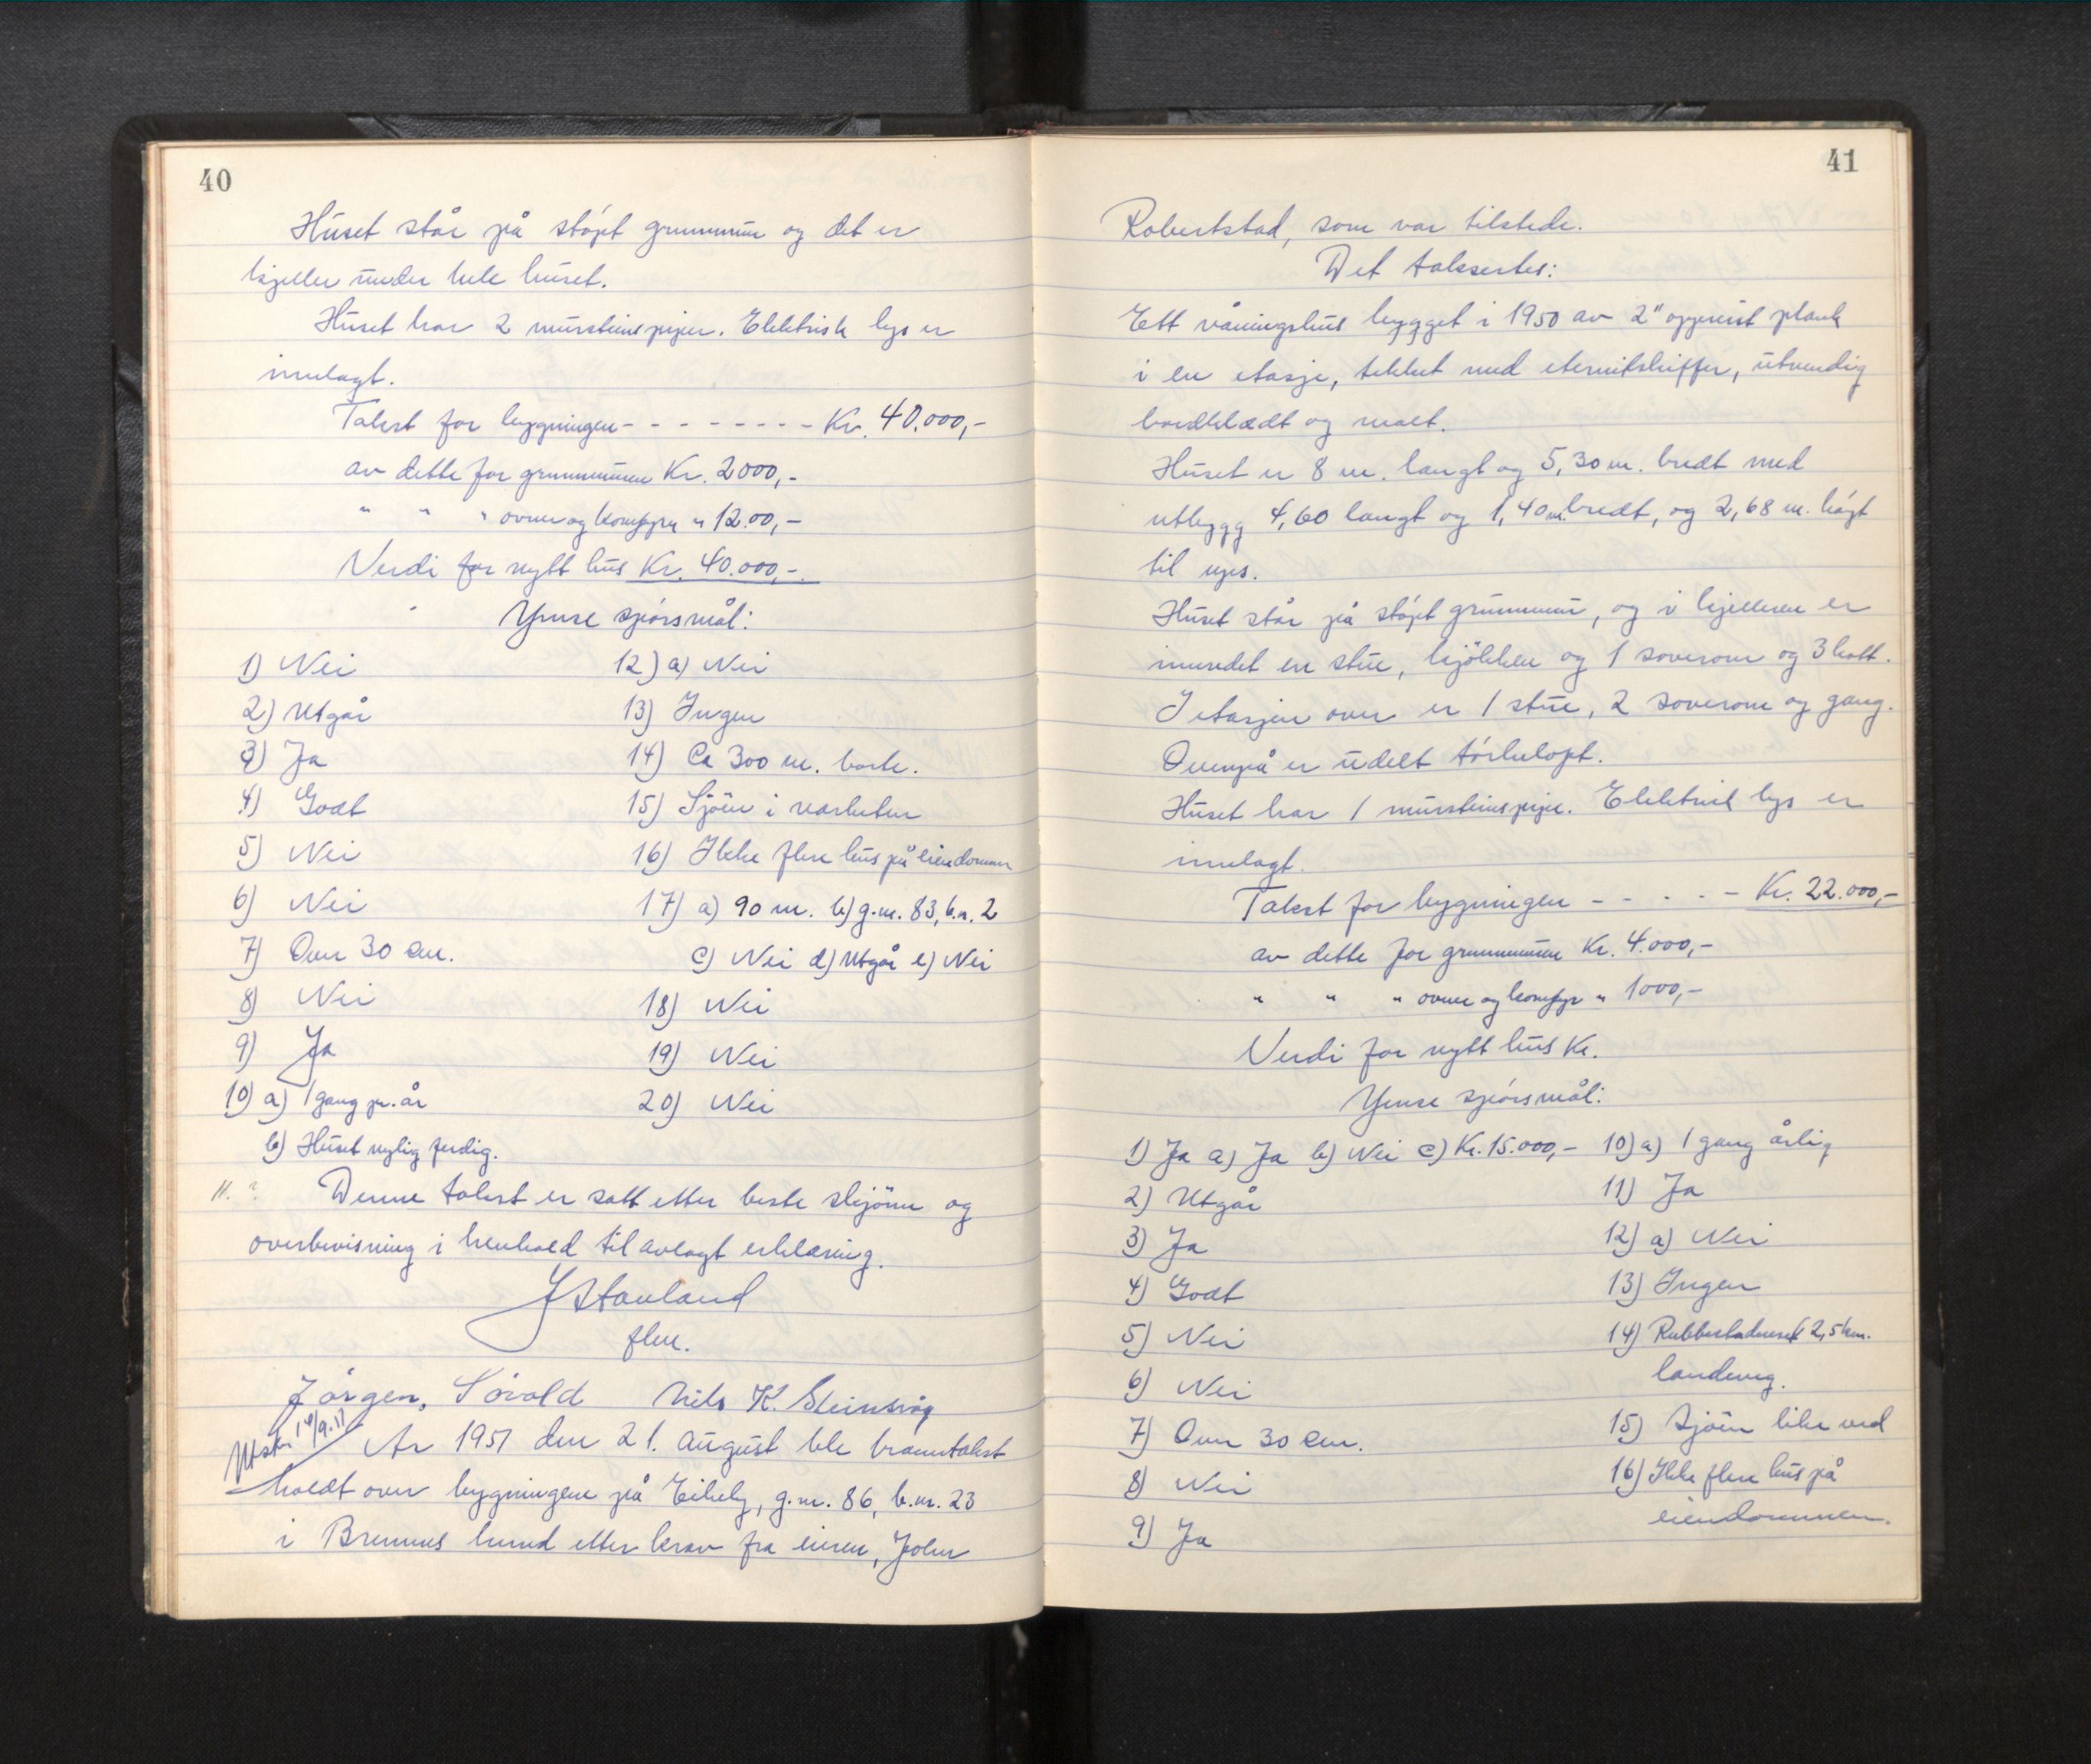 40
Huset står på støpt grunnmur og det er
kjeller under hele huset.
Huset har 2 mursteinspiper. Elektrisk lys er
innlagt.
Takst for bygningen - - - - - - - - Kr. 40.000,-
av dette for grunnmuren Kr. 2000,-
" " " ovner og komfyr " 12.00,-
Verdi for nytt hus Kr. 40.000,-.
Ymse spörsmål:
1) Nei
2) Utgår
3) Ja
4) Godt
5) Nei
6) Nei
7) Over 30 cm.
8) Nei
9) Ja
10) a) 1 gang pr. år
b) Huset nylig ferdig.
11. ?
12) a) Nei
13) Ingen
14) Ca 300 m. borte.
15) Sjöen i nærheten
16) Ikke flere hus på eiendommen
17) a) 90 m. b) g.nr. 83, b.n. 2
c) Nei d) Utgår e) Nei
18) Nei
19) Nei
20) Nei
Denne takst er satt etter beste skjönn og
overbevisning i henhold til avlagt erklæring.
J Stauland
flm.
Jörgen Sövold Nils K. Steinsvåg
Utskr. 14/9.51
År 1951 den 21. august ble branntakst
holdt over bygningene på Eikely, g.nr. 86, b.nr. 23
i Bremnes herred etter krav fra eieren, John
41
Robertstad, som var tilstede.
Det taksertes:
Ett våningshus bygget i 1950 av 2" oppreist plank
i en etasje, tekket med eternitskiffer, utvendig
bordkledt og malt.
Huset er 8 m. langt og 5,30 m. bredt med
utbygg 4,60 langt og 1,40 m. bredt, og 2,68 m. högt
til ups.
Huset står på støpt grunnmur, og i kjelleren er
innredet en stue, kjökken og 1 soverom og 3 kott.
I etasjen over er 1 stue, 2 soverom og gang.
Ovenpå er udelt törkeloft.
Huset har 1 mursteinspipe. Elektrisk lys er
innlagt.
Takst for bygningen - - - - - Kr. 22.000,-
av dette for grunnmuren Kr. 4.000,-
" " " ovner og komfyr " 1000,-
Verdi for nytt hus Kr.
Ymse spörsmål:
1) Ja a) Ja b) Nei c) Kr. 15.000,-
2) Utgår
3) Ja
4) Godt
5) Nei
6) Nei
7) Over 30 cm.
8) Nei
9) Ja
10) a) 1 gang årlig
11) Ja
12) a) Nei
13) Ingen
14) Rubbestadneset 2,5 km.
landeveg.
15) Sjöen like ved
16) Ikke flere hus på
eiendommen.